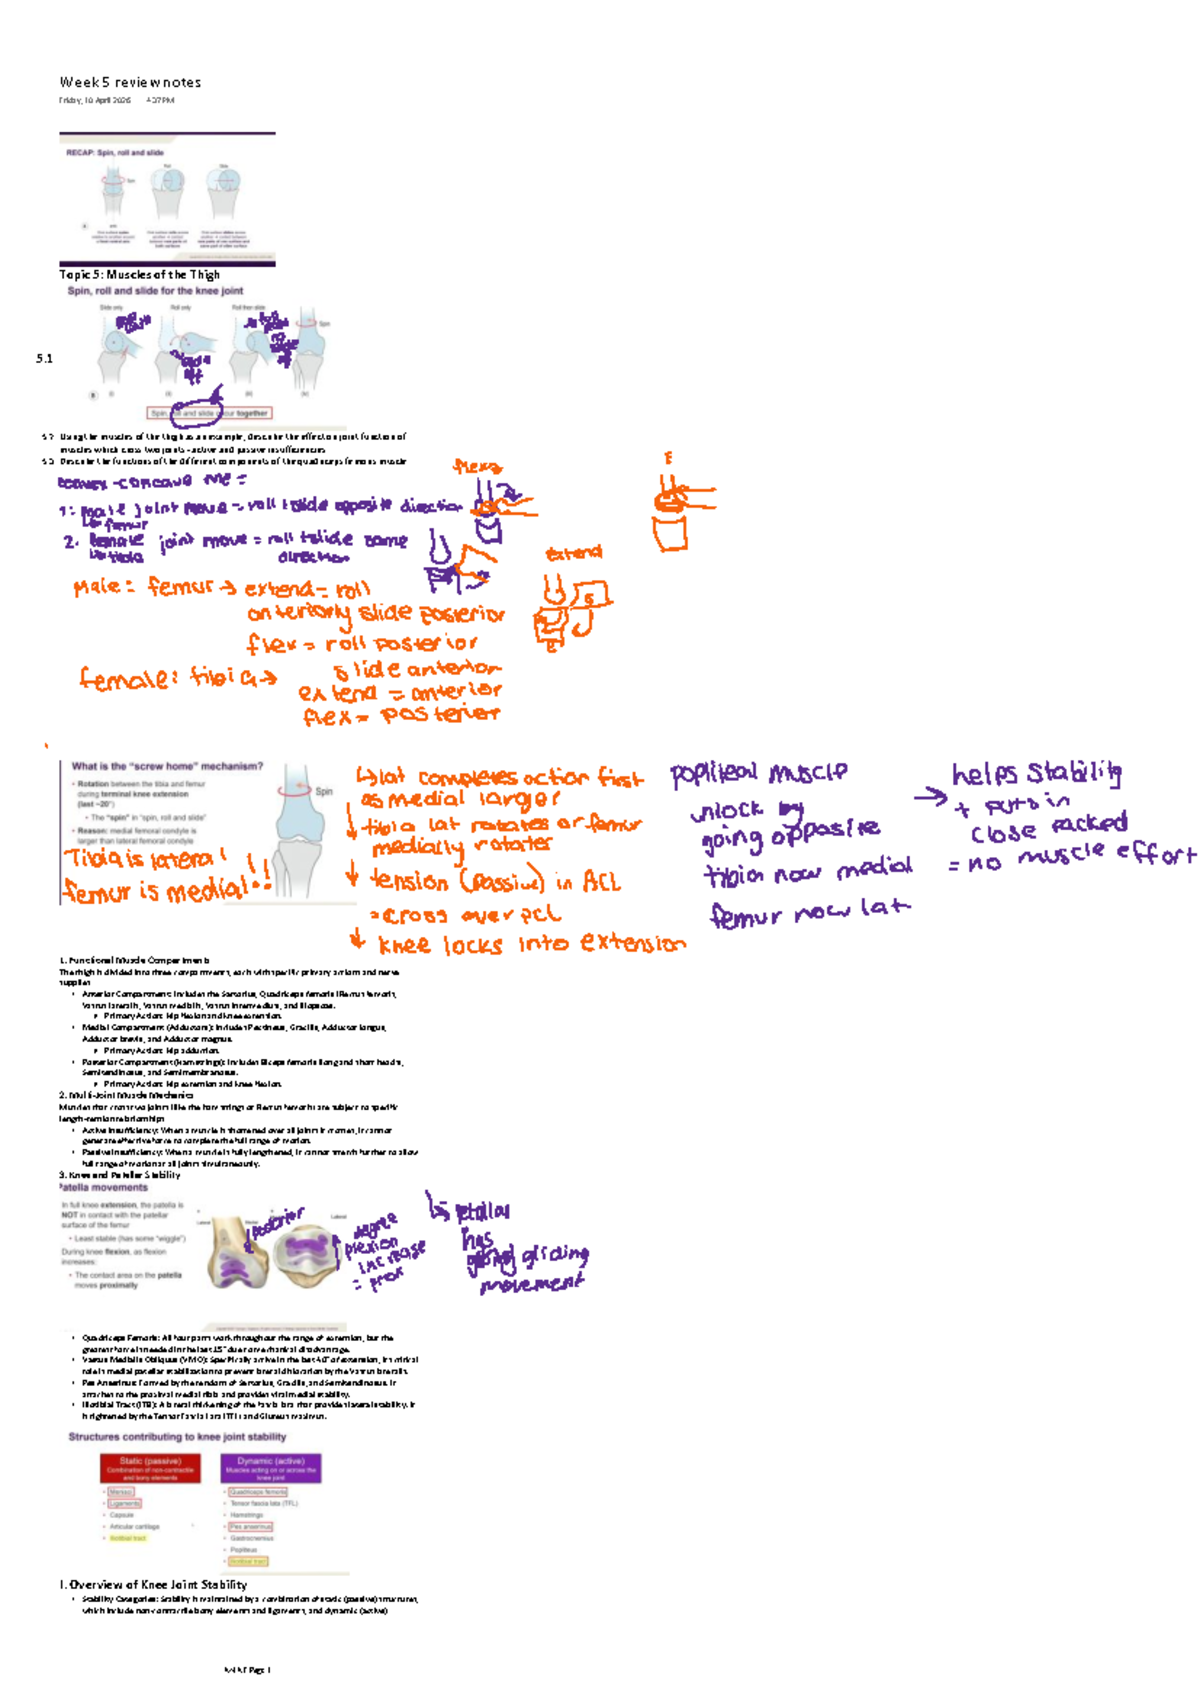 Week 5 review notes
Friday, 10 April 2026 4:37 PM
RECAP: Spin, roll and slide
Spin
Roll
Slide
Topic 5: Muscles of the Thigh
Spin, roll and slide for the knee joint
Slide only
Roll only
Roll then slide
Spin
5.1
Spin, roll and slide occur together
5.2 Using the muscles of the thigh as an example, describe the effect on joint function of
muscles which cross two joints - active and passive insufficiencies
5.3 Describe the functions of the different components of the quadriceps femoris muscle
convex-concave
1: male joint move = roll + slide opposite direction
↳ femur
2. female joint move = roll + slide same
↳ tibia direction
flex
extend
Male: femur → extend = roll
anteriorly slide posterior
flex = roll posterior
slide anterior
female: tibia →
extend = anterior
flex = posterior
What is the "screw home" mechanism?
• Rotation between the tibia and femur
during terminal knee extension
(last ~20°)
• The "spin" in "spin, roll and slide"
• Reason: medial femoral condyle is
larger than lateral femoral condyle
Spin
Tibia is lateral!
femur is medial!!
↳ lat completes action first
as medial larger
↓ tibia lat rotates or femur
medially rotates
↓ tension (passive) in ACL
= cross over pcl
↓ knee locks into extension
popliteal muscle
unlock by
going opposite
tibia now medial
femur now lat
→ helps stability
+ puts in
close packed
= no muscle effort
1. Functional Muscle Compartments
The thigh is divided into three compartments, each with specific primary actions and nerve
supplies
• Anterior Compartment: Includes the Sartorius, Quadriceps Femoris (Rectus Femoris,
Vastus Lateralis, Vastus Medialis, Vastus Intermedius), and Iliopsoas.
Primary Action: Hip flexion and knee extension.
• Medial Compartment (Adductors): Includes Pectineus, Gracilis, Adductor longus,
Adductor brevis, and Adductor magnus.
Primary Action: Hip adduction.
• Posterior Compartment (Hamstrings): Includes Biceps Femoris (long and short heads),
Semitendinosus, and Semimembranosus.
Primary Action: Hip extension and knee flexion.
2. Multi-Joint Muscle Mechanics
Muscles that cross two joints (like the hamstrings or Rectus Femoris) are subject to specific
length-tension relationships
• Active Insufficiency: When a muscle is shortened over all joints it crosses, it cannot
generate effective force to complete the full range of motion.
• Passive Insufficiency: When a muscle is fully lengthened, it cannot stretch further to allow
full range of motion at all joints simultaneously.
3. Knee and Patellar Stability
Patella movements
In full knee extension, the patella is
NOT in contact with the patellar
surface of the femur
• Least stable (has some "wiggle")
During knee flexion, as flexion
increases:
• The contact area on the patella
moves proximally
Lateral
Lateral
posterior
degree
flexion
increase
= prox
↳ patellar
has
gliding
movement
• Quadriceps Femoris: All four parts work throughout the range of extension, but the
greatest force is needed in the last 15° due to mechanical disadvantage.
• Vastus Medialis Oblique (VMO): Specifically active in the last 40° of extension, its critical
role is medial patellar stabilization to prevent lateral dislocation by the Vastus Lateralis.
• Pes Anserinus: Formed by the tendons of Sartorius, Gracilis, and Semitendinosus. It
attaches to the proximal medial tibia and provides vital medial stability.
• Iliotibial Tract (ITB): A lateral thickening of the fascia lata that provides lateral stability. It
is tightened by the Tensor Fascia Lata (TFL) and Gluteus Maximus.
Structures contributing to knee joint stability
Static (passive)
Combination of non-contractile
and bony elements
• Menisci
• Ligaments
• Capsule
• Articular cartilage
• Iliotibial tract
Dynamic (active)
Muscles acting on or across the
knee joint
• Quadriceps femoris
• Tensor fascia lata (TFL)
• Hamstrings
• Pes anserinus
• Gastrocnemius
• Popliteus
• Iliotibial tract
1. Overview of Knee Joint Stability
• Stability Categories: Stability is maintained by a combination of static (passive) structures,
which include non-contractile bony elements and ligaments, and dynamic (active)
Page 1